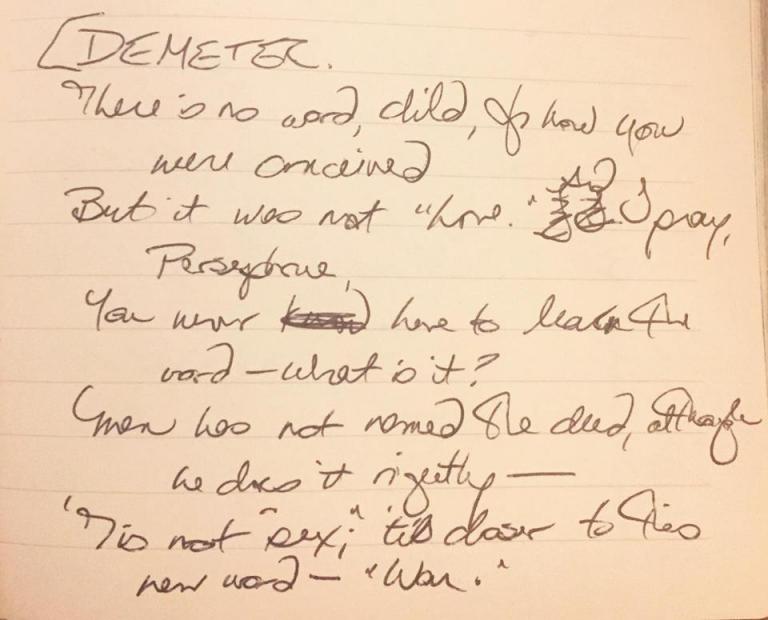 [DEMETER.
There is no word, child, of how you
were conceived
But it was not "Love." I pray,
Persephone,
You never have to learn the
word – what is it?
Man has not named the deed, although
he does it nightly —
'Tis not "sex;" 'tis closer to this
new word – "War."